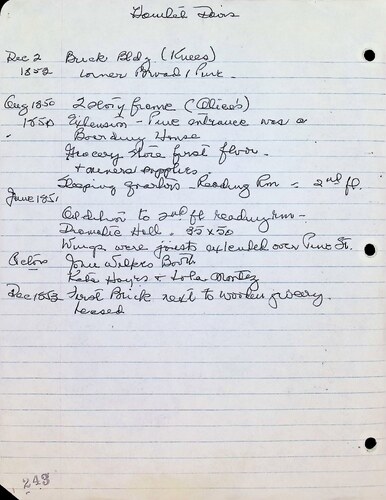 Hamlet Davis
Dec 2 Brick Bldg (Knees)
1852 Corner Broad / Pine.
Aug 1850 2 story frame (Alice's)
1850 Extension - Pine entrance was a
Boarding House
Grocery Store first floor.
+ miners supplies.
Sleeping quarters - Reading Rm = 2nd fl.
June 1851
Addition to 2nd fl reading rm -
Dramatic Hall. 35 x 50
Wings were joists extended over Pine St.
Actors John Wilkes Booth
Kate Hayes + Lola Montez
Dec 1853 First Brick next to wooden grocery.
Leased
243